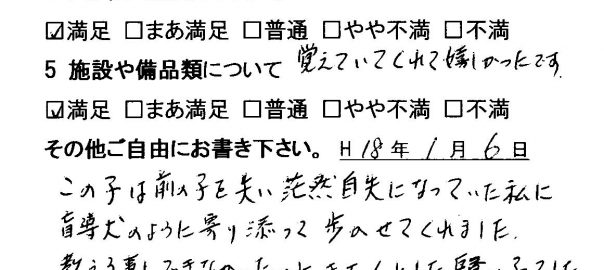 ☑満足 □まあ満足 □普通 □やや不満 □不満
5 施設や備品類について 覚えていてくれて嬉しかったです。
☑満足 □まあ満足 □普通 □やや不満 □不満
その他ご自由にお書き下さい。 H 18 年 1 月 6 日
この子は前の子を失い茫然自失になっていた私に
盲導犬のように寄り添って歩のせてくれました。